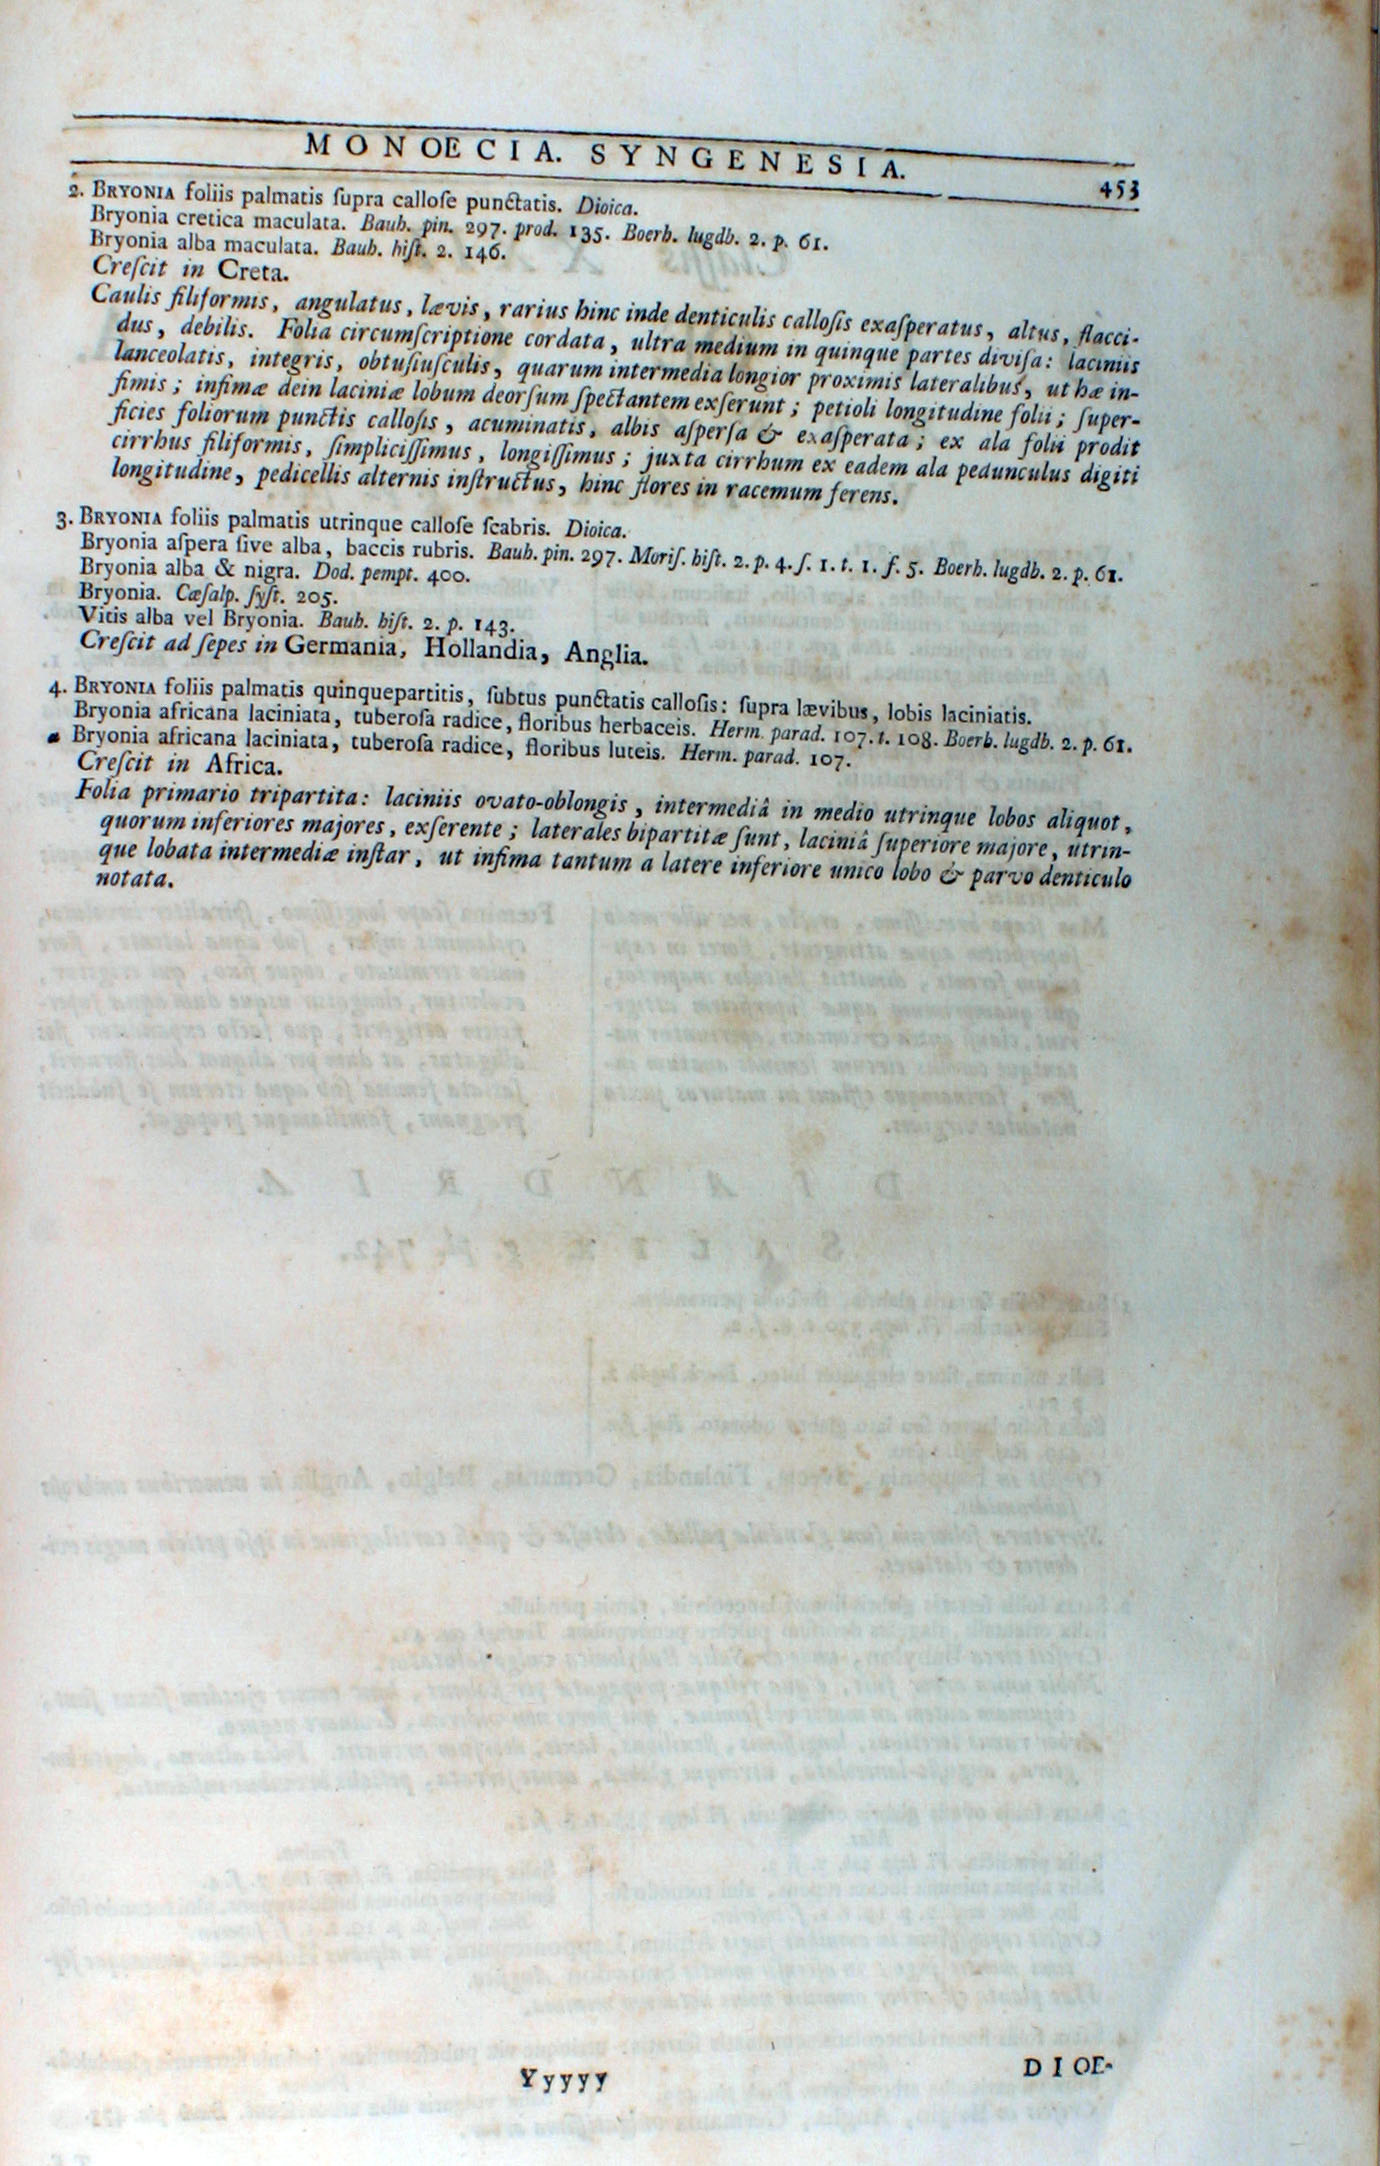 MONOECIA. SYNGENESIA.
453
2. BRYONIA foliis palmatis ſupra calloſe punctatis. Dioica.
Bryonia cretica maculata. Bauh. pin. 297. prod. 135. Boerh. lugdb. 2. p. 61.
Bryonia alba maculata. Bauh. hiſt. 2. 146.
Creſcit in Creta.
Caulis filiformis, angulatus, lævis, rarius hinc inde denticulis calloſis exaſperatus, altus, flacci-
dus, debilis. Folia circumſcriptione cordata, ultra medium in quinque partes diviſa: laciniis
lanceolatis, integris, obtuſiuſculis, quarum intermedia longior proximis lateralibus, ut hæ in-
fimis; infimæ dein laciniæ lobum deorſum ſpectantem exſerunt; petioli longitudine folii; ſuper-
ficies foliorum punctis calloſis, acuminatis, albis aſperſa & exaſperata; ex ala folii prodit
cirrhus filiformis, ſimpliciſſimus, longiſſimus; juxta cirrhum ex eadem ala pedunculus digiti
longitudine, pedicellis alternis inſtructus, hinc flores in racemum ferens.
3. BRYONIA foliis palmatis utrinque calloſe ſcabris. Dioica.
Bryonia aſpera ſive alba, baccis rubris. Bauh. pin. 297. Moriſ. hiſt. 2. p. 4. ſ. 1. t. 1. f. 5. Boerh. lugdb. 2. p. 61.
Bryonia alba & nigra. Dod. pempt. 400.
Bryonia. Cæſalp. ſyſt. 205.
Vitis alba vel Bryonia. Bauh. hiſt. 2. p. 143.
Creſcit ad ſepes in Germania, Hollandia, Anglia.
4. BRYONIA foliis palmatis quinquepartitis, ſubtus punctatis calloſis: ſupra lævibus, lobis laciniatis.
Bryonia africana laciniata, tuberoſa radice, floribus herbaceis. Herm. parad. 107. t. 108. Boerh. lugdb. 2. p. 61.
Bryonia africana laciniata, tuberoſa radice, floribus luteis. Herm. parad. 107.
Creſcit in Africa.
Folia primario tripartita: laciniis ovato-oblongis, intermediâ in medio utrinque lobos aliquot,
quorum inferiores majores, exſerente; laterales bipartitæ ſunt, laciniâ ſuperiore majore, utrin-
que lobata intermediæ inſtar, ut infima tantum a latere inferiore unico lobo & parvo denticulo
notata.
Yyyyy
DIOE-